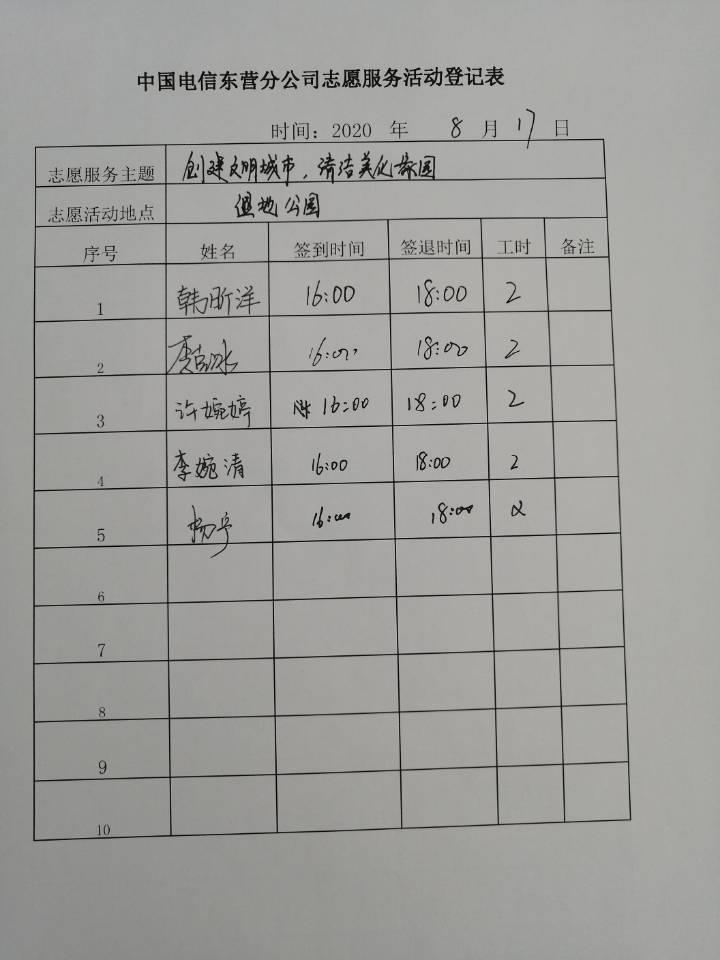 中国电信东营分公司志愿服务活动登记表
时间：2020 年 8 月 17 日
志愿服务主题 创建文明城市，清洁美化家园
志愿活动地点 湿地公园
序号 姓名 签到时间 签退时间 工时 备注
1 韩昕洋 16:00 18:00 2
2 16:00 18:00 2
3 许婉婷 16:00 18:00 2
4 李婉清 16:00 18:00 2
5 杨宁 16:00 18:00 2
6
7
8
9
10